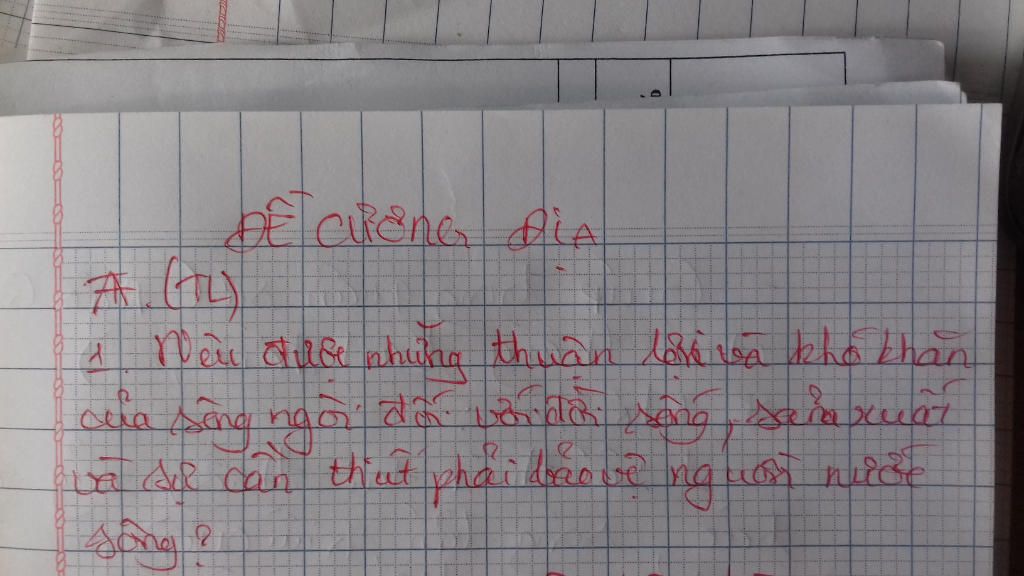 ĐỀ CƯƠNG ĐỊA
A. (TL)
1. Nêu được những thuận lợi và khó khăn
của sông ngòi đối với đời sống, sản xuất
và sự cần thiết phải bảo vệ nguồn nước
sông?